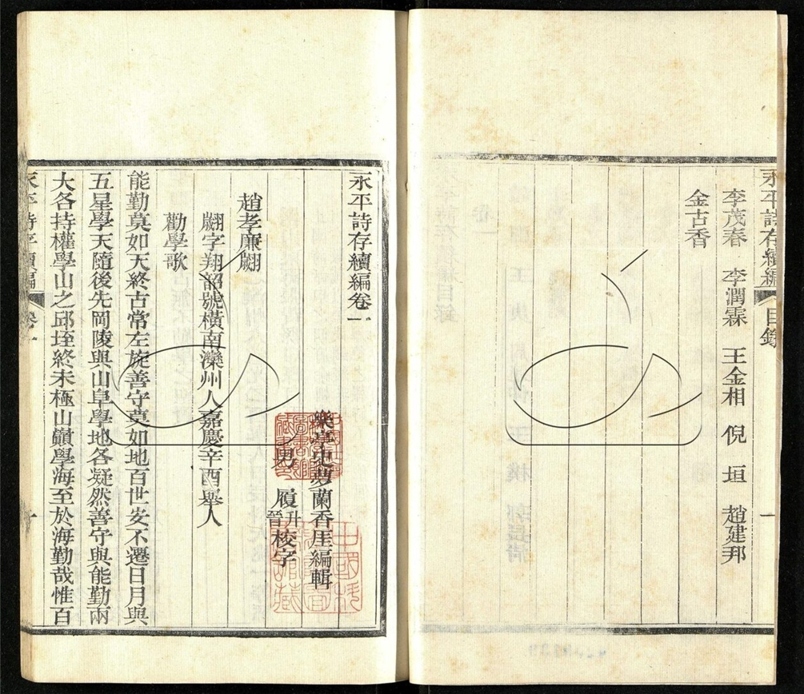 永平詩存續編 目錄 一
李茂春 李潤霖 王金相 倪垣 趙建邦
金古香
永平詩存續編卷一
樂亭史夢蘭香厓編輯
男 履升 履晉 校字
趙孝廉翽
翽字翔韶號橫南灤州人嘉慶辛酉舉人
勸學歌
能勤莫如天終古常左旋善守莫如地百世安不遷日月與
五星學天隨後先岡陵與山阜學地各凝然善守與能勤兩
大各持權學山之邱垤終未極山巔學海至於海勤哉惟百
永平詩存續編 卷一 一